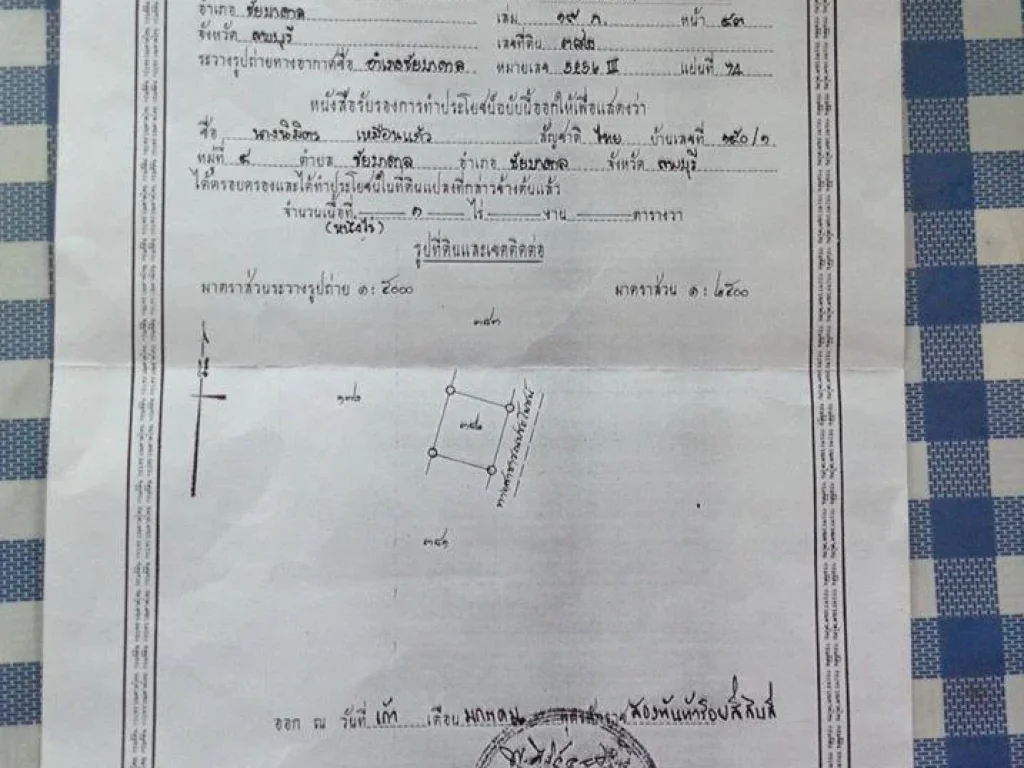 อำเภอ ชัยบาดาล เล่ม ๑๙ ก. หน้า ๔๓
จังหวัด ลพบุรี เลขที่ดิน ๓๘๒
ระวางรูปถ่ายทางอากาศชื่อ อำเภอชัยบาดาล หมายเลข 5239 III แผ่นที่ 74
หนังสือรับรองการทำประโยชน์ฉบับนี้ออกให้เพื่อแสดงว่า
ชื่อ นางนิมิตร เหมือนแล้ว สัญชาติ ไทย บ้านเลขที่ ๑๕๐/๑
หมู่ที่ ๕ ตำบล ชัยบาดาล อำเภอ ชัยบาดาล จังหวัด ลพบุรี
ได้ครอบครองและได้ทำประโยชน์ในที่ดินแปลงที่กล่าวข้างต้นแล้ว
จำนวนเนื้อที่ ๑ ไร่ งาน ตารางวา
(หนึ่งไร่)
รูปที่ดินและเขตติดต่อ
มาตราส่วนระวางรูปถ่าย ๑ : ๕๐๐๐ มาตราส่วน ๑ : ๒๕๐๐
๓๘๓
๑๗๖
๓๘๒
ทางสาธารณประโยชน์
๓๘๑
ออก ณ วันที่ เก้า เดือน มกราคม สองพันห้าร้อยสี่สิบสี่